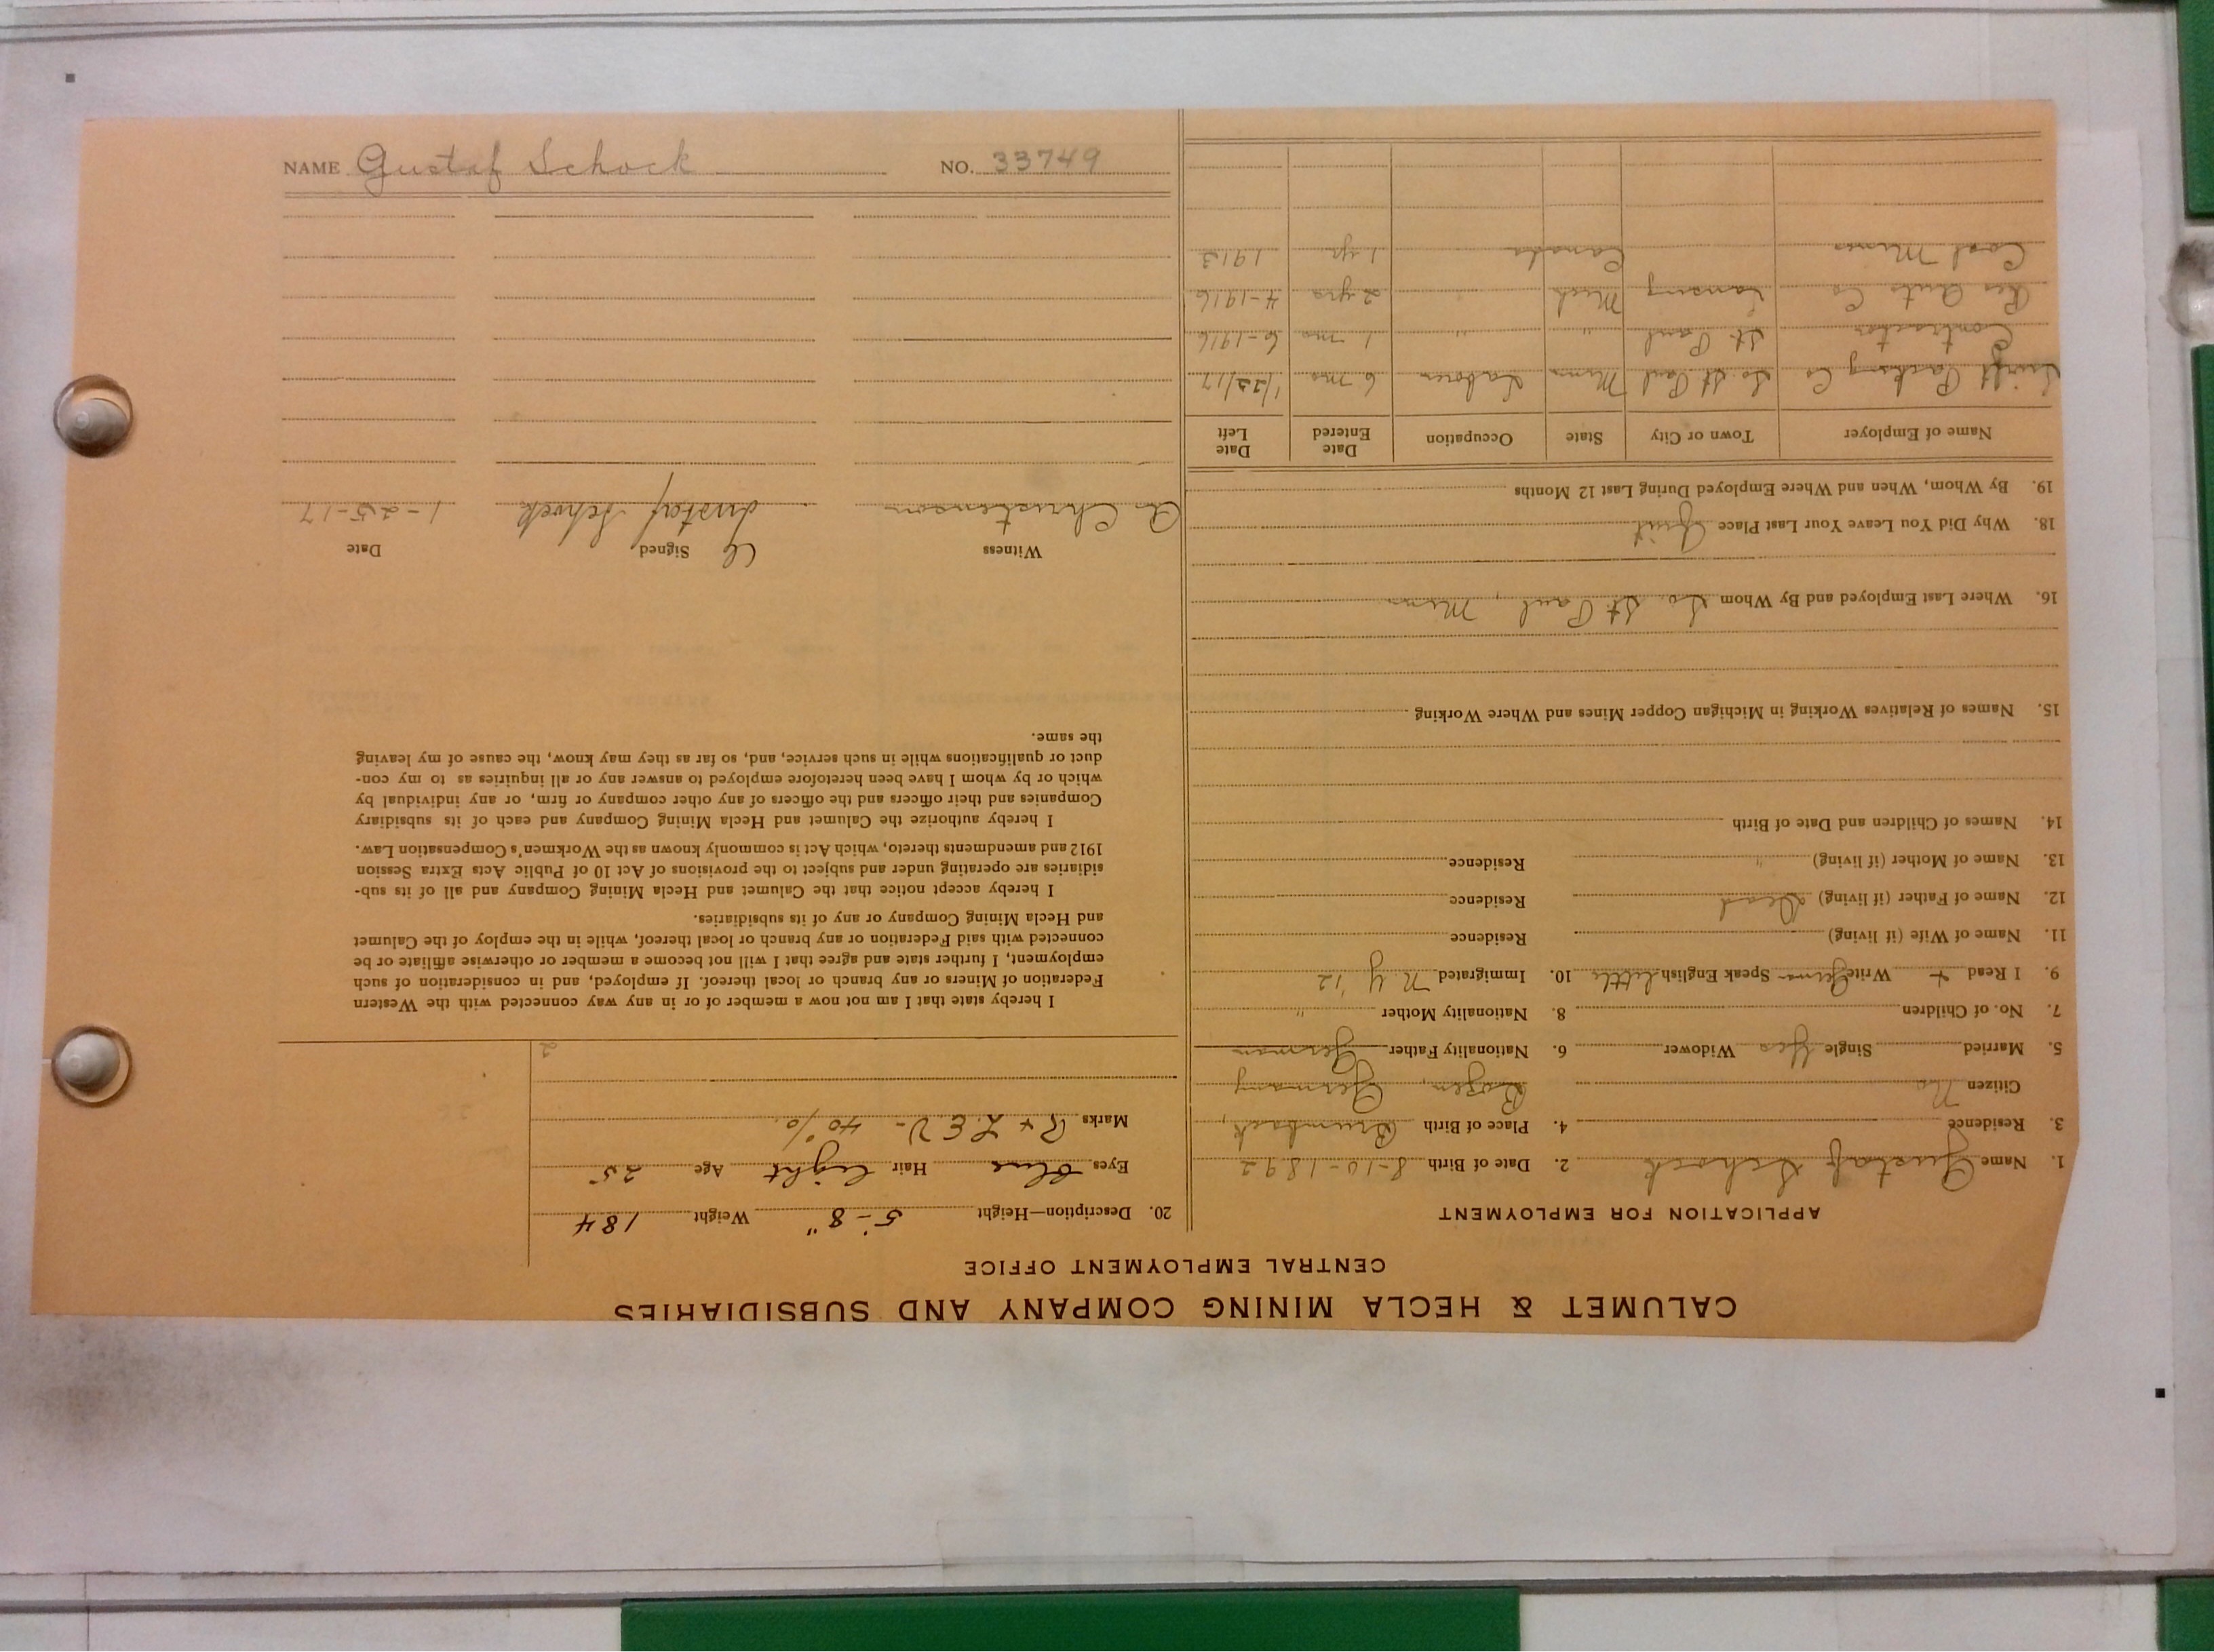 NAME Gustaf Schock NO. 33749
CALUMET & HECLA MINING COMPANY AND SUBSIDIARIES
CENTRAL EMPLOYMENT OFFICE
APPLICATION FOR EMPLOYMENT
1. Name Gustaf Schock 2. Date of Birth 8-10-1892
3. Residence 4. Place of Birth
Citizen No Germany
5. Married Single Yes Widower 6. Nationality Father German
7. No. of Children 8. Nationality Mother "
9. I Read + Write German Speak English little 10. Immigrated N Y '12
11. Name of Wife (if living) Residence
12. Name of Father (if living) Dead Residence
13. Name of Mother (if living) " Residence
14. Names of Children and Date of Birth
15. Names of Relatives Working in Michigan Copper Mines and Where Working
16. Where Last Employed and By Whom So. St. Paul, Minn
18. Why Did You Leave Your Last Place Quit
19. By Whom, When and Where Employed During Last 12 Months
Name of Employer Town or City State Occupation Date Entered Date Left
Swift Packing Co So. St Paul Minn Laborer 6 mo 1/22/17
Contractor St Paul " " 1 mo 6-1916
Reo Auto Co Lansing Mich " 2 yrs 4-1916
Coal Mines Canada 1 yr 1913
20. Description—Height 5'-8" Weight 184
Eyes blue Hair light Age 25
Marks R + L.E.V- 40%
2
I hereby state that I am not now a member of or in any way connected with the Western
Federation of Miners or any branch or local thereof. If employed, and in consideration of such
employment, I further state and agree that I will not become a member or otherwise affiliate or be
connected with said Federation or any branch or local thereof, while in the employ of the Calumet
and Hecla Mining Company or any of its subsidiaries.
I hereby accept notice that the Calumet and Hecla Mining Company and all of its sub-
sidiaries are operating under and subject to the provisions of Act 10 of Public Acts Extra Session
1912 and amendments thereto, which Act is commonly known as the Workmen's Compensation Law.
I hereby authorize the Calumet and Hecla Mining Company and each of its subsidiary
Companies and their officers and the officers of any other company or firm, or any individual by
which or by whom I have been heretofore employed to answer any or all inquiries as to my con-
duct or qualifications while in such service, and, so far as they may know, the cause of my leaving
the same.
Witness Signed Date
A. Christenson Gustaf Schock 1-25-17